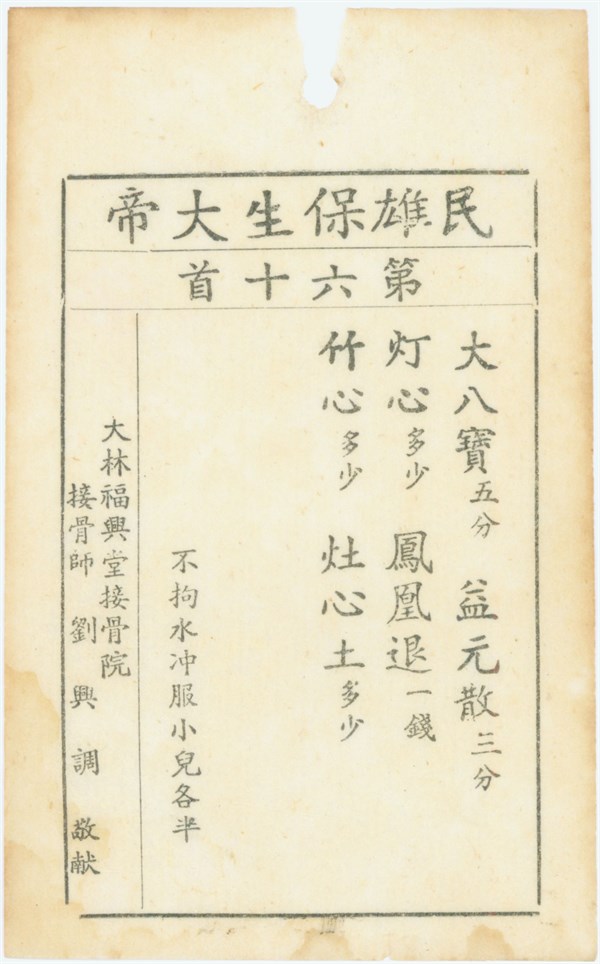 民雄保生大帝
第六十首
大八寶五分 益元散三分
灯心多少 鳳凰退一錢
竹心多少 灶心土多少
不拘水冲服小兒各半
大林福興堂接骨院
接骨師 劉興調 敬献